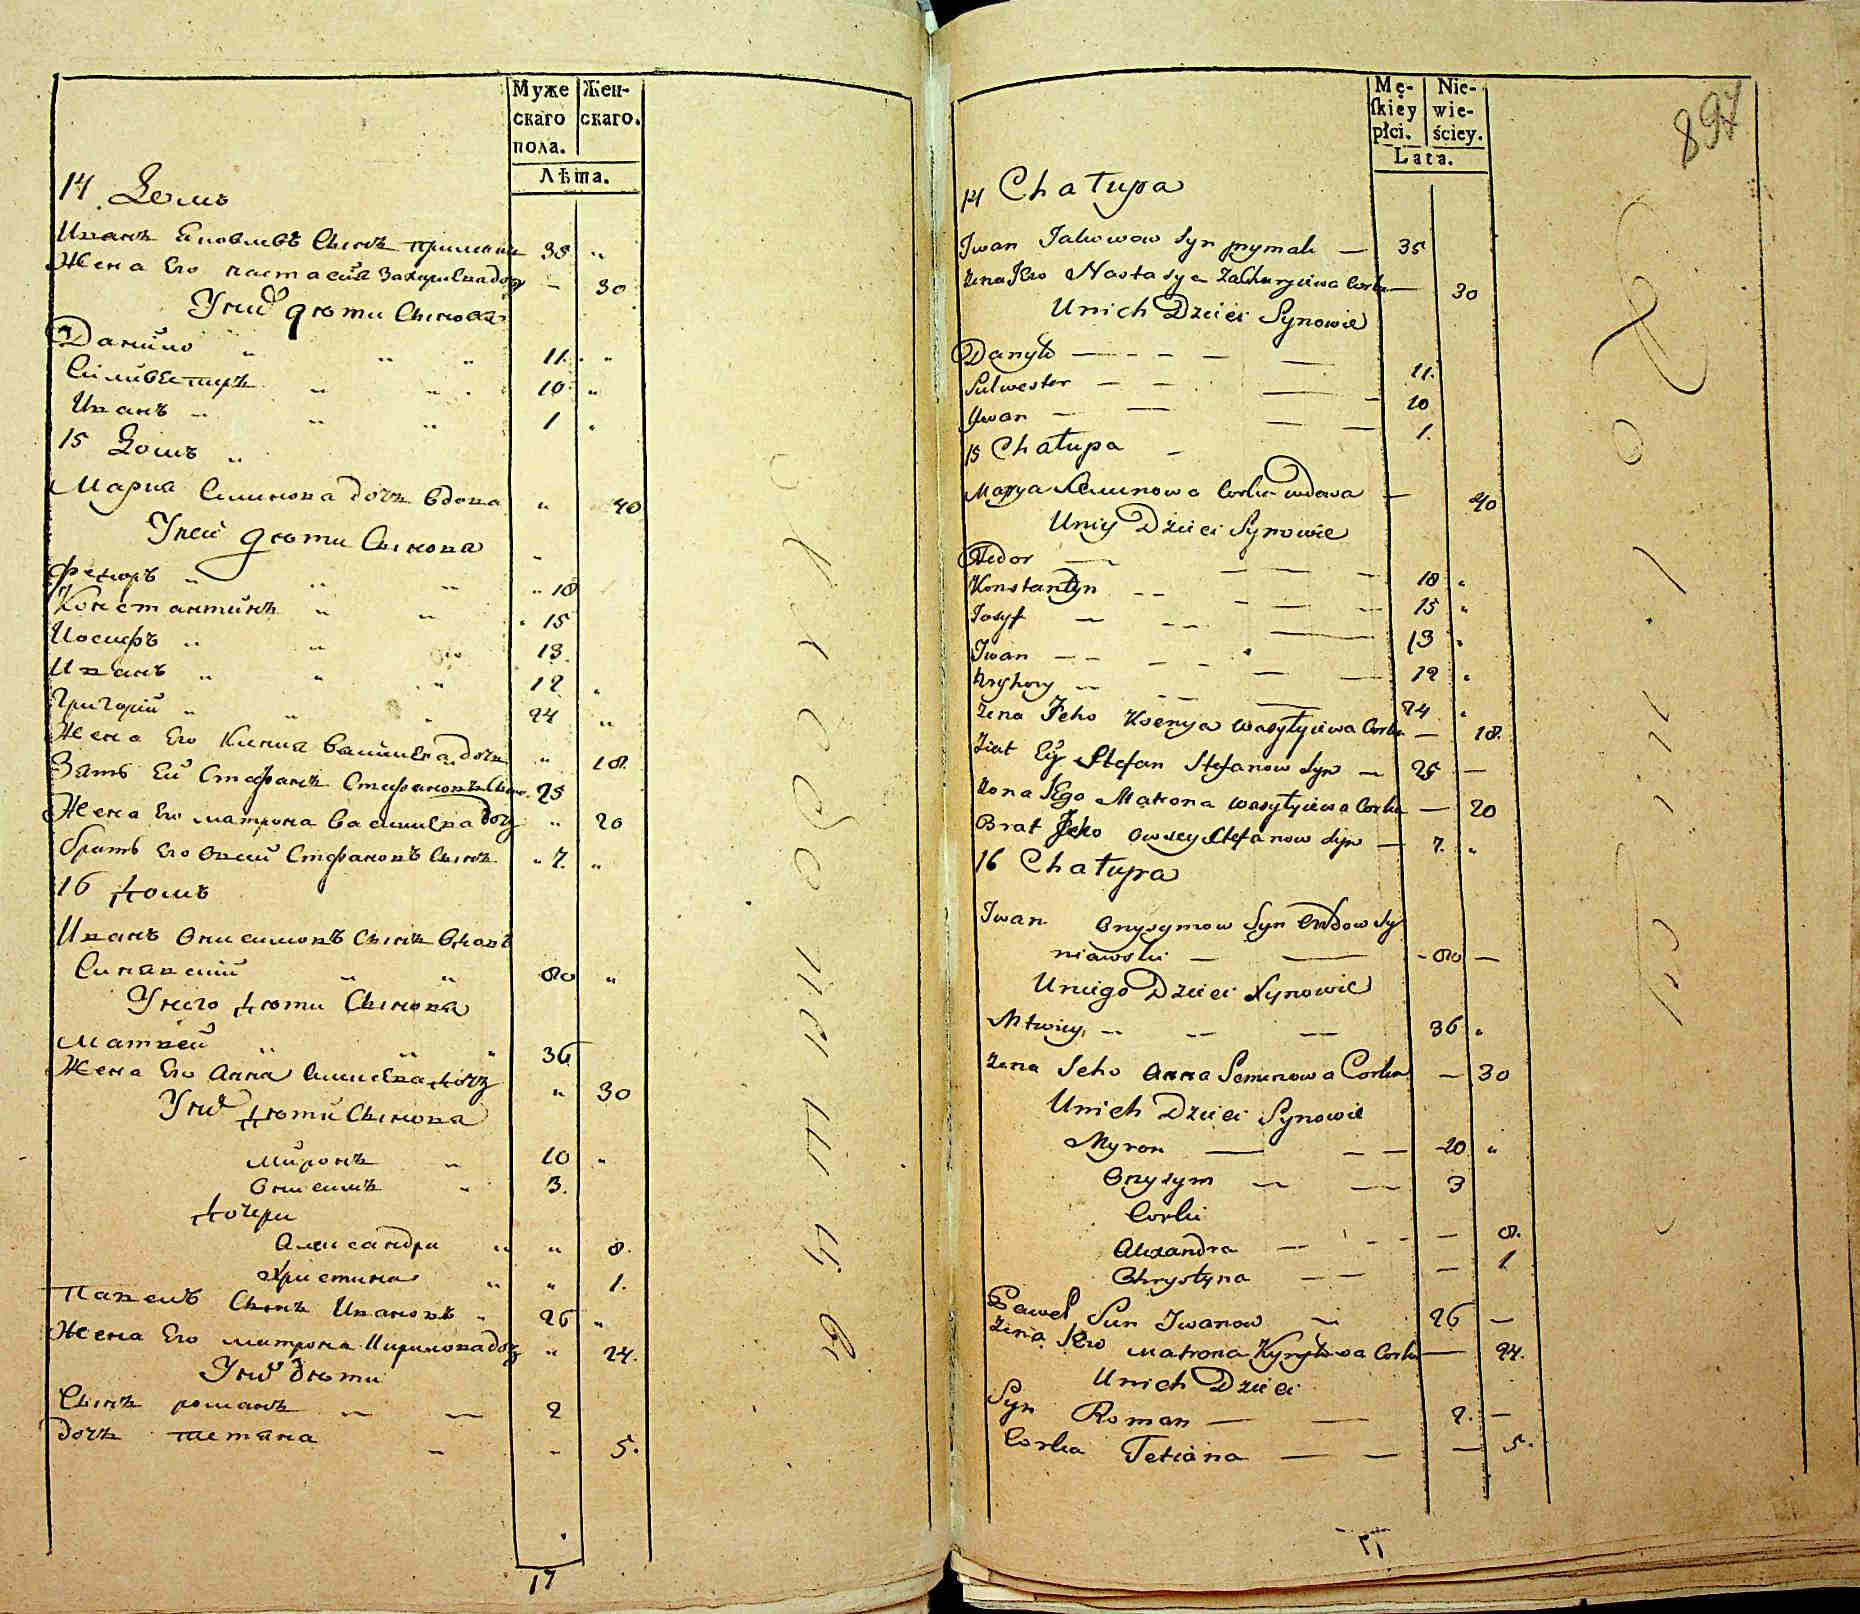 Муже
скаго
пола.
Жен-
скаго.
Лѣта.
14 Домъ
Иванъ Яковлевъ Сынъ примакъ 35 "
Жена Его настасия Захариевадочь — 30
Уних дѣти Сынова
Данило " " " 11. "
Силивестръ " " 10 "
Иванъ " " " 1 "
15 Домъ "
Мария Симинова дочь вдова " 40
Уней дѣти Сынова "
Федоръ " " " 18
Константинъ " " " 15
Иосифъ " " " 13
Иванъ " " " 12 "
Григорий " " " 24 "
Жена Его Ксения василиева дочь " 18.
Зять Ей Стефанъ Стефановъ Сынъ 25
Жена Его матрона василиева дочь " 20
братъ Его Овсий Стефановъ Сынъ " 7. "
16 домъ
Иванъ Онисимовъ Сынъ вдовъ
Синавский " " 80 "
Унего дѣти Сынова
Матвей " " " 36
Жена Его Анна Симиева дочь " 30
Уних дѣти Сынова
миронъ " 10 "
Онисимъ " 3.
дочери
Александра " " 8.
Христина " " 1.
Павелъ Сынъ Ивановъ " 26 "
Жена Его матрона Кириловадочь " 24.
Уних дѣти
Сынъ романъ — — 2
дочь тетяна — - 5.
17
Mę-
ſkiéy
płci.
Nie-
wie-
ściey.
Lata.
897
14 Chałupa
Iwan Jakowow Syn prymak — 35
Zena Jeho Nastasya Zacharyiewa Corka — 30
Unich Dzieci Synowie
Danyło — - - — — 11.
Sulwester — — — - 10
Ywan — — — — 1.
15 Chałupa -
Marya Semenowa Corka wdowa — 40
Uniy Dzieci Synowie
Fedor — — — — - 18 "
Konstantyn - - — — — 15 "
Iosyf — - - — — 13 "
Iwan — - — - — — 12 "
Hryhory — - - — 24 "
Zena Jeho Ksenya Wasyłyiewa Corka — 18.
Ziat Ey Stefan Stefanow Syn — 25 —
Zona Jego Matrona Wasyłyiewa Corka — 20
Brat Jeho Owsey Stefanow Syn — 7. "
16 Chałupa
Iwan Onysymow Syn Wdow Sy
niawski — — - 80 —
Uniego Dzieci Synowie
Mtwiey - - - - — 36 "
Zena Jeho Anna Semenowa Corka — 30
Unich Dzieci Synowie
Myron — - — 10 "
Onysym — — 3
Corki
Alexandra — - - — 8.
Chrystyna — — — 1
Paweł Sun Iwanow — 26 —
Zena Jeho Matrona Kyryłowa Corka — 24.
Unich Dzieci
Syn Roman — — 2. —
Corka Tetiana — — — 5.